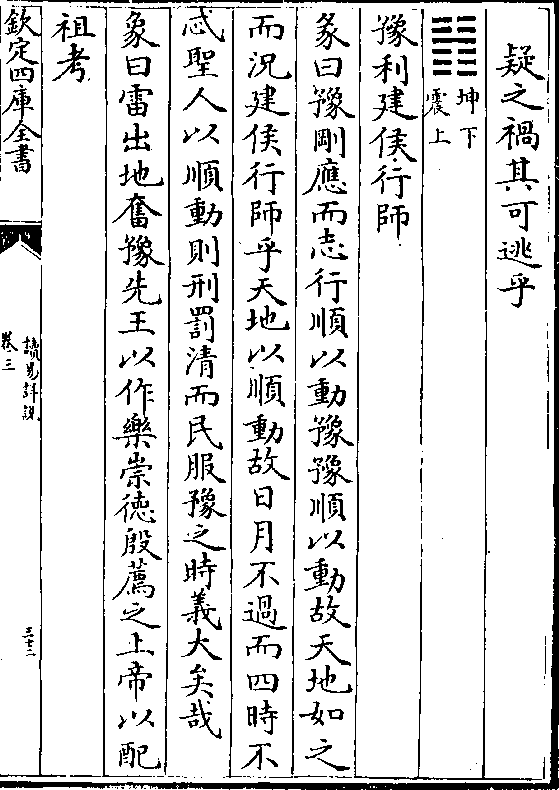 疑之禍其可逃乎
坤下
震上
豫利建侯行師
彖曰豫剛應而志行順以動豫豫順以動故天地如之
而況建侯行師乎天地以順動故日月不過而四時不
忒聖人以順動則刑罰清而民服豫之時義大矣哉
象曰雷出地奮豫先王以作樂崇徳殷薦之上帝以配
祖考
欽定四庫全書
讀易詳說
卷三
三十三